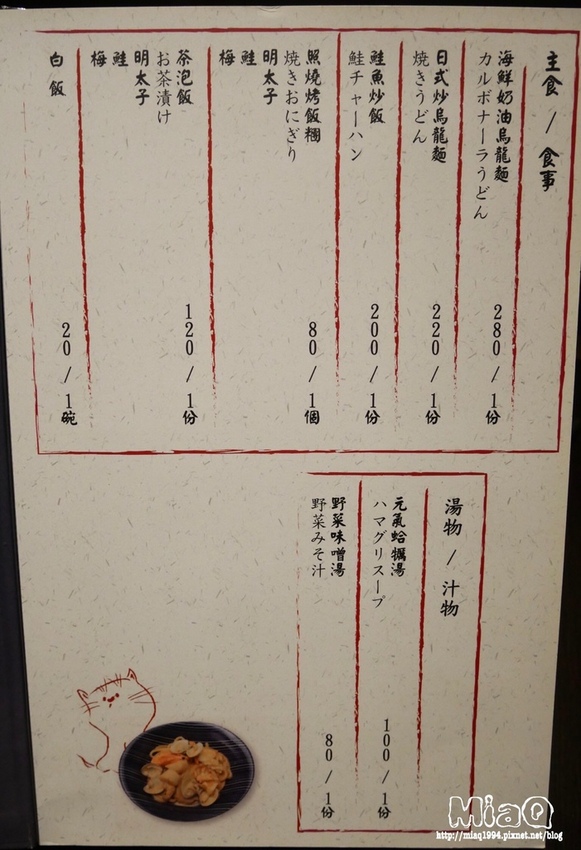 主食／食事
海鮮奶油烏龍麵
カルボナーラうどん
280／1份
日式炒烏龍麵
焼きうどん
220／1份
鮭魚炒飯
鮭チャーハン
200／1份
照燒烤飯糰
焼きおにぎり
明太子
鮭
梅
80／1個
茶泡飯
お茶漬け
明太子
鮭
梅
120／1份
白飯
20／1碗
湯物／汁物
元氣蛤蠣湯
ハマグリスープ
100／1份
野菜味噌湯
野菜みそ汁
80／1份
MiaQ
http://miaq1994.pixnet.net/blog